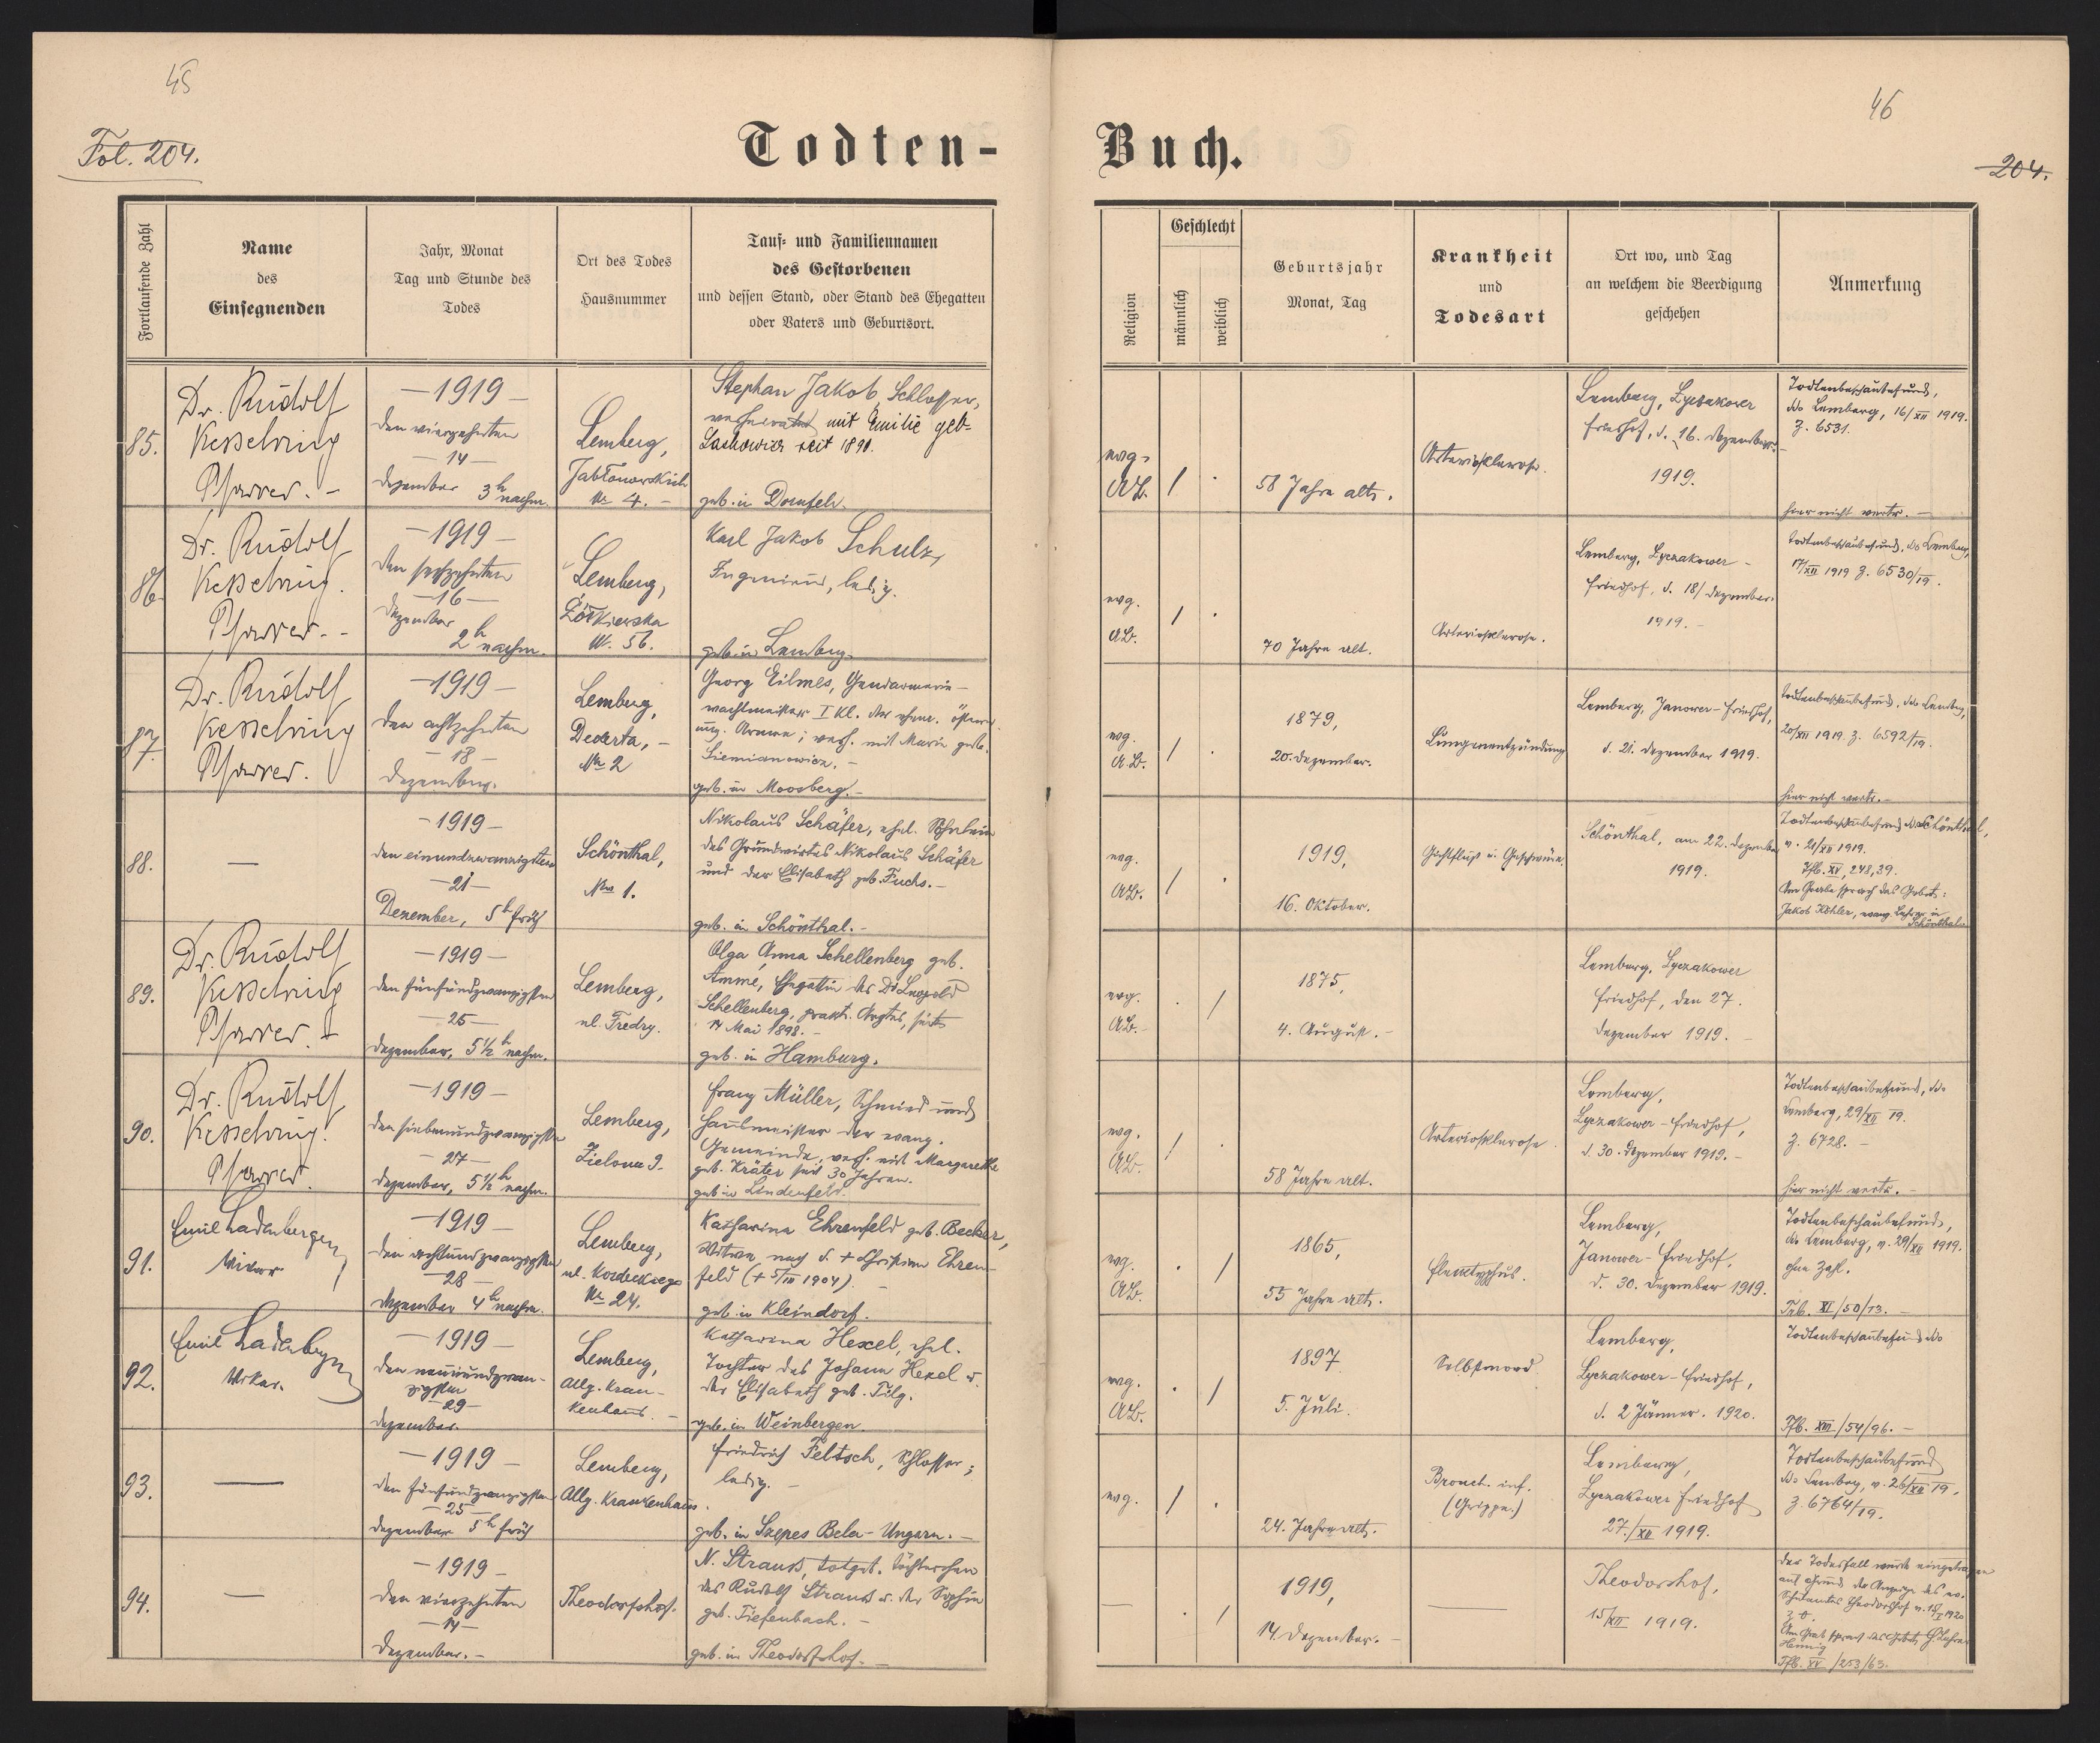 45
Fol. 204.
Todten-
Fortlaufende Zahl
Name
des
Einsegnenden
Jahr, Monat
Tag und Stunde des
Todes
Ort des Todes
Hausnummer
Tauf- und Familiennamen
des Gestorbenen
und dessen Stand, oder Stand des Ehegatten
oder Vaters und Geburtsort.
46
204.
Buch.
Religion
Geschlecht
männlich
weiblich
Geburtsjahr
Monat, Tag
Krankheit
und
Todesart
Ort wo, und Tag
an welchem die Beerdigung
geschehen
Anmerkung
85.
Dr. Rudolf
Kesselring
Pfarrer. -
— 1919 —
den vierzehnten
— 14 —
Dezember 3h nachm.
Lemberg,
Jabłonowskich
Nr 4. -
Stephan Jakob, Schlosser,
verheiratet mit Emilie geb-
seit 1890.
geb. in Dornfeld.
evg-
AB.
/ .
58 Jahre alt.
Arteriosklerose.
Lemberg, Lyczakower
Friedhof, d. 16. Dezember
1919.
Todtenbeschaubefund,
ddo Lemberg, 16/XII 1919.
Z. 6531.
hier nicht vertr. —
86.
Dr. Rudolf
Kesselring.
Pfarrer. -
— 1919 —
den sechzehnten
— 16 —
Dezember
2h nachm.
Lemberg,
Żółkiewska
Nr. 56.
Karl Jakob Schulz,
Ingenieur, ledig.
geb. in Lemberg.
evg.
AB.
/ .
70 Jahre alt.
Arteriosklerose.
Lemberg, Lyczakower -
Friedhof, d. 18/ Dezember
1919. -
Todtenbeschaubefund, ddo Lemberg,
17/XII 1919 Z. 6530/19.
87.
Dr. Rudolf
Kesselring
Pfarrer.
— 1919 —
den achtzehnten
— 18 —
Dezember.
Lemberg,
Decerta, -
Nr 2
Georg Eilmes, Gendarmerie-
wachtmeister I Kl. der ehem. österr.
ung. Armee; verh. mit Marie geb.
Siemianowicz. -
geb. in Moosberg. -
evg.
A.B.
/ .
1879,
20. Dezember.
Lungenentzündung
Lemberg, Janower-Friedhof,
d. 21. Dezember 1919.
Todtenbeschaubefund, ddo Lemberg,
20/XII 1919. Z. 6592/19.
hier nicht vertr. -
88.
—
— 1919 —
den einundzwanzigsten
— 21 —
Dezember, 5h früh
Schönthal,
Nro 1.
Nikolaus Schäfer, ehel. Söhnlein
des Grundwirtes Nikolaus Schäfer
und der Elisabeth geb. Fuchs. -
geb. in Schönthal. -
evg.
AB.
/ .
1919,
16. Oktober.
u. Geschwüre.
Schönthal, am 22. Dezember
1919.
Todtenbeschaubefund ddo Schönthal,
v. 21/XII 1919.
Tfb. XV, 248, 39.
Am Grabe sprach das Gebet:
Jakob Köhler, evang. Lehrer in
Schönthal.
89.
Dr. Rudolf
Kesselring
Pfarrer. -
— 1919 —
den fünfundzwanzigsten
— 25 —
Dezember, 5 1/2 h nachm.
Lemberg,
ul. Fredry.
Olga Anna Schellenberg geb.
Ammé, Ehegattin des Dr Leopold
Schellenberg, prakt. Arztes, seit
14 Mai 1898. -
geb. in Hamburg.
evg.
AB. -
. /
1875,
4. August. -
Lemberg, Lyczakower
Friedhof, den 27.
Dezember 1919. -
90.
Dr. Rudolf
Kesselring.
Pfarrer.
— 1919 —
den siebenundzwanzigsten
— 27 —
Dezember, 5 1/2 h nachm.
Lemberg,
Zielona 9.
Franz Müller, Schmied und
Hausmeister der evang.
Gemeinde, verh. mit Margarethe
geb. Kräter seit 30 Jahren.
geb in Lindenfeld.
evg.
AB.
/ .
58 Jahre alt.
Arteriosklerose.
Lemberg,
Lyczakower-Friedhof,
d. 30. Dezember 1919. -
Todtenbeschaubefund, ddo
Lemberg, 29/XII 19.
Z. 6728. -
hier nicht vertr. -
91.
Emil Ladenberger
Vikar
— 1919 —
den achtundzwanzigsten
— 28 —
Dezember 4h nachm.
Lemberg,
ul. Kordeckiego
Nr 24.
Katharina Ehrenfeld geb. Becker,
Witwe nach d. + Christian Ehren-
feld (+ 5/III 1904). -
geb. in Kleindorf.
evg.
AB.
. /
1865,
55 Jahre alt.
Flecktyphus.
Lemberg,
Janower-Friedhof,
d. 30. Dezember 1919.
Todtenbeschaubefund,
ddo Lemberg, v. 29/XII 1919.
ohne Zahl.
Tfb. XI/50/13. -
92.
Emil Ladenberger
Vikar.
— 1919 —
den neunundzwan-
zigsten
— 29 —
Dezember.
Lemberg,
Allg. Kran-
kenhaus. -
Katharina Hexel, ehel.
Tochter des Johann Hexel u.
der Elisabeth geb. Filg.
geb. in Weinbergen.
evg.
AB.
. /
1897
5. Juli.
Selbstmord
Lemberg,
Lyczakower-Friedhof,
d. 2 Jänner. 1920.
Todtenbeschaubefund ddo
Tfb. XIII/54/96. -
93.
—
— 1919 —
den fünfundzwanzigsten
— 25 —
Dezember 5h früh
Lemberg,
Allg. Krankenhaus.
Friedrich Feltsch, Schlosser;
ledig. -
geb. in Szepes Bela - Ungarn. -
evg.
/ .
24. Jahre alt.
Bronch. inf.
(Grippe.)
Lemberg,
Lyczakower Friedhof
27./XII 1919.
Todtenbeschaubefund
ddo Lemberg, v. 26/XII 19.
Z. 6764/19.
94.
—
— 1919 —
den vierzehnten
— 14 —
Dezember. -
Theodorshof.
N. Strauß, totgeb. Töchterchen
des Rudolf Strauß u. der Sophie
geb. Tiefenbach. -
geb. in Theodorshof. -
—
. /
1919,
14. Dezember. -
—
Theodorshof,
15/XII 1919.
Der Todesfall wurde eingetragen
auf Grund der Anzeige des ev.
Schulamtes Theodorshof v. 15/I 1920
Am Grab sprach das Gebet Lehrer
Hennig
Tfb. XV/253/63.